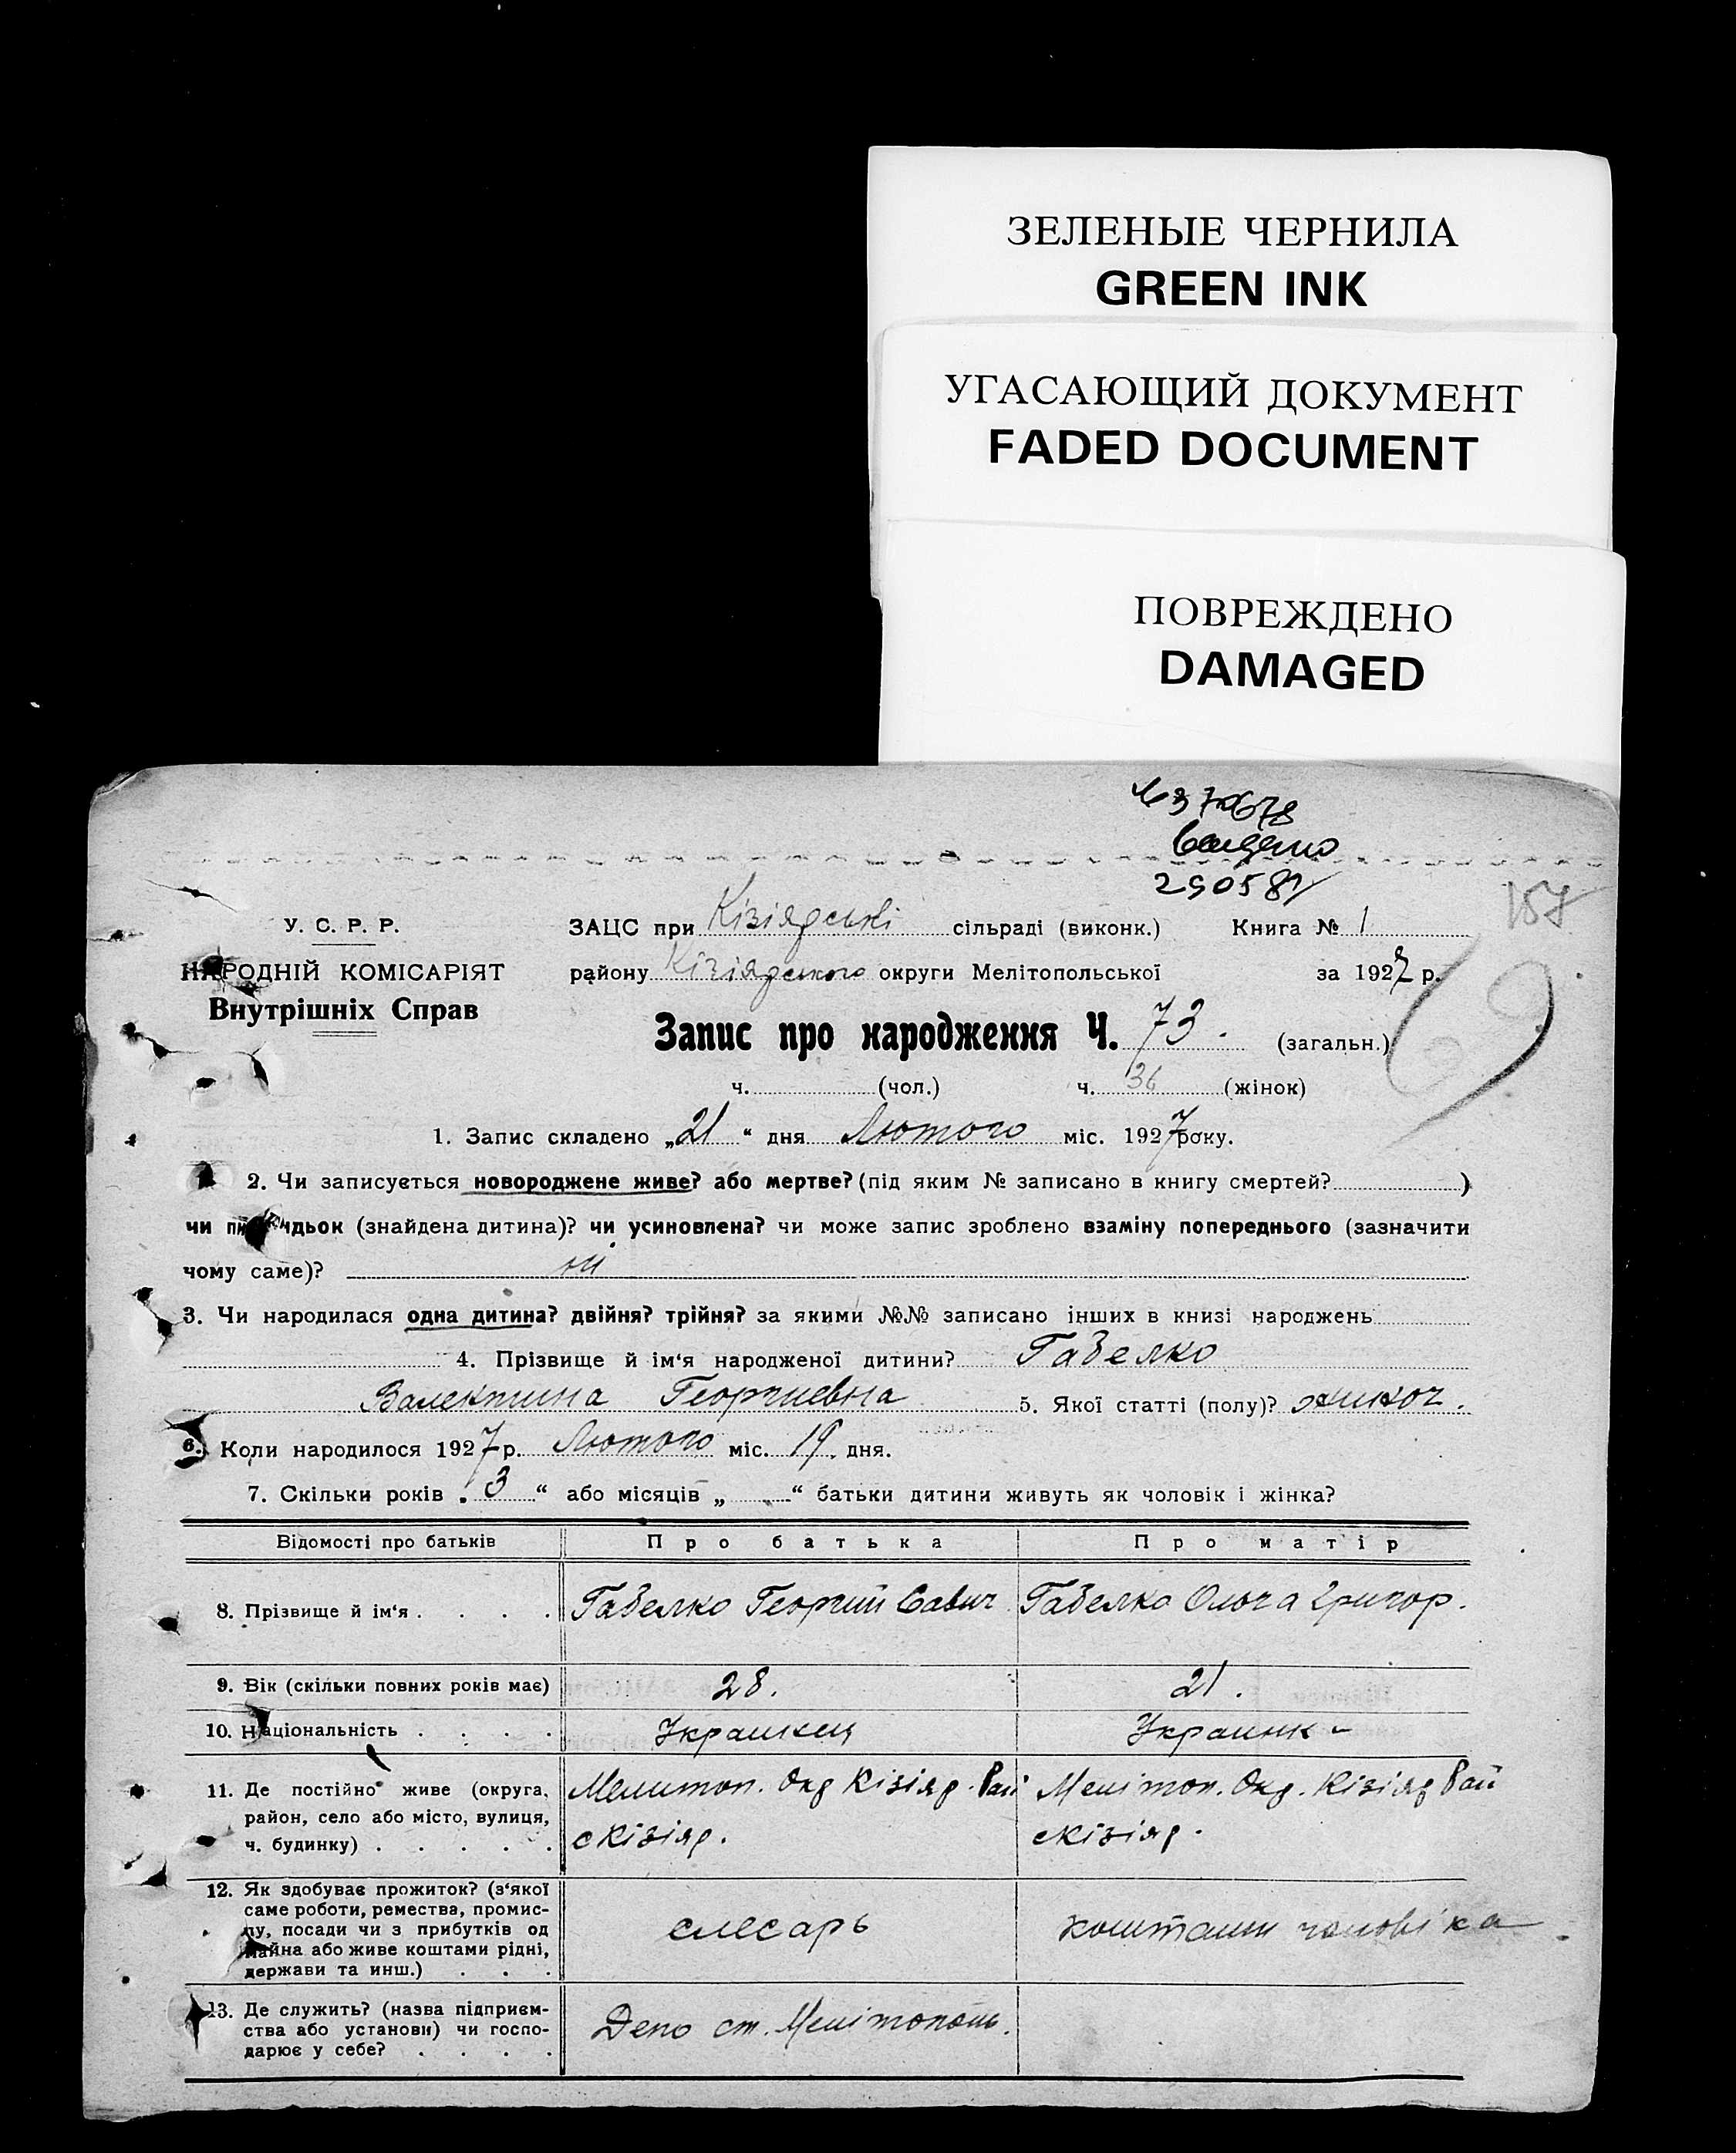 ЗЕЛЕНЫЕ ЧЕРНИЛА
GREEN INK
УГАСАЮЩИЙ ДОКУМЕНТ
FADED DOCUMENT
ПОВРЕЖДЕНО
DAMAGED
290581
157
У. С. Р. Р.
ЗАЦС при Кізіярські сільраді (виконк.) Книга № 1
НАРОДНІЙ КОМІСАРІЯТ
району Кізіярського округи Мелітопольської за 1927 р.
Внутрішніх Справ
Запис про народження Ч. 73. (загальн.)
ч. (чол.) ч. 36 (жінок)
1. Запис складено „21“ дня Лютого міс. 1927 року.
2. Чи записується новороджене живе? або мертве? (під яким № записано в книгу смертей? )
чи підкидьок (знайдена дитина)? чи усиновлена? чи може запис зроблено взаміну попереднього (зазначити
чому саме)? ні
3. Чи народилася одна дитина? двійня? трійня? за якими №№ записано інших в книзі народжень
4. Прізвище й ім‘я народженої дитини? Габелко
Валентина Георгиевна 5. Якої статті (полу)? жіноч.
6. Коли народилося 1927 р. Лютого міс. 19. дня.
7. Скільки років „3“ або місяців „ “ батьки дитини живуть як чоловік і жінка?
Відомості про батьків Про батька Про матір
8. Прізвище й ім‘я . . . . Габелко Георгий Савич Габелко Ольга Григор.
9. Вік (скільки повних років має) 28. 21.
10. Національність . . . . Украинец Украинка
11. Де постійно живе (округа, Мелитоп. Окр Кізіяр. Рай Мелітоп. Окр. Кізіяр Рай
район, село або місто, вулиця, с Кізіяр. с Кізіяр.
ч. будинку) . . . . .
12. Як здобуває прожиток? (з‘якої
саме роботи, ремества, промис-
лу, посади чи з прибутків од слесарь коштами чоловіка
майна або живе коштами рідні,
держави та инш.) . . .
13. Де служить? (назва підприєм-
ства або установи) чи госпо- Депо ст. Мелітополь.
дарює у себе? . . . .